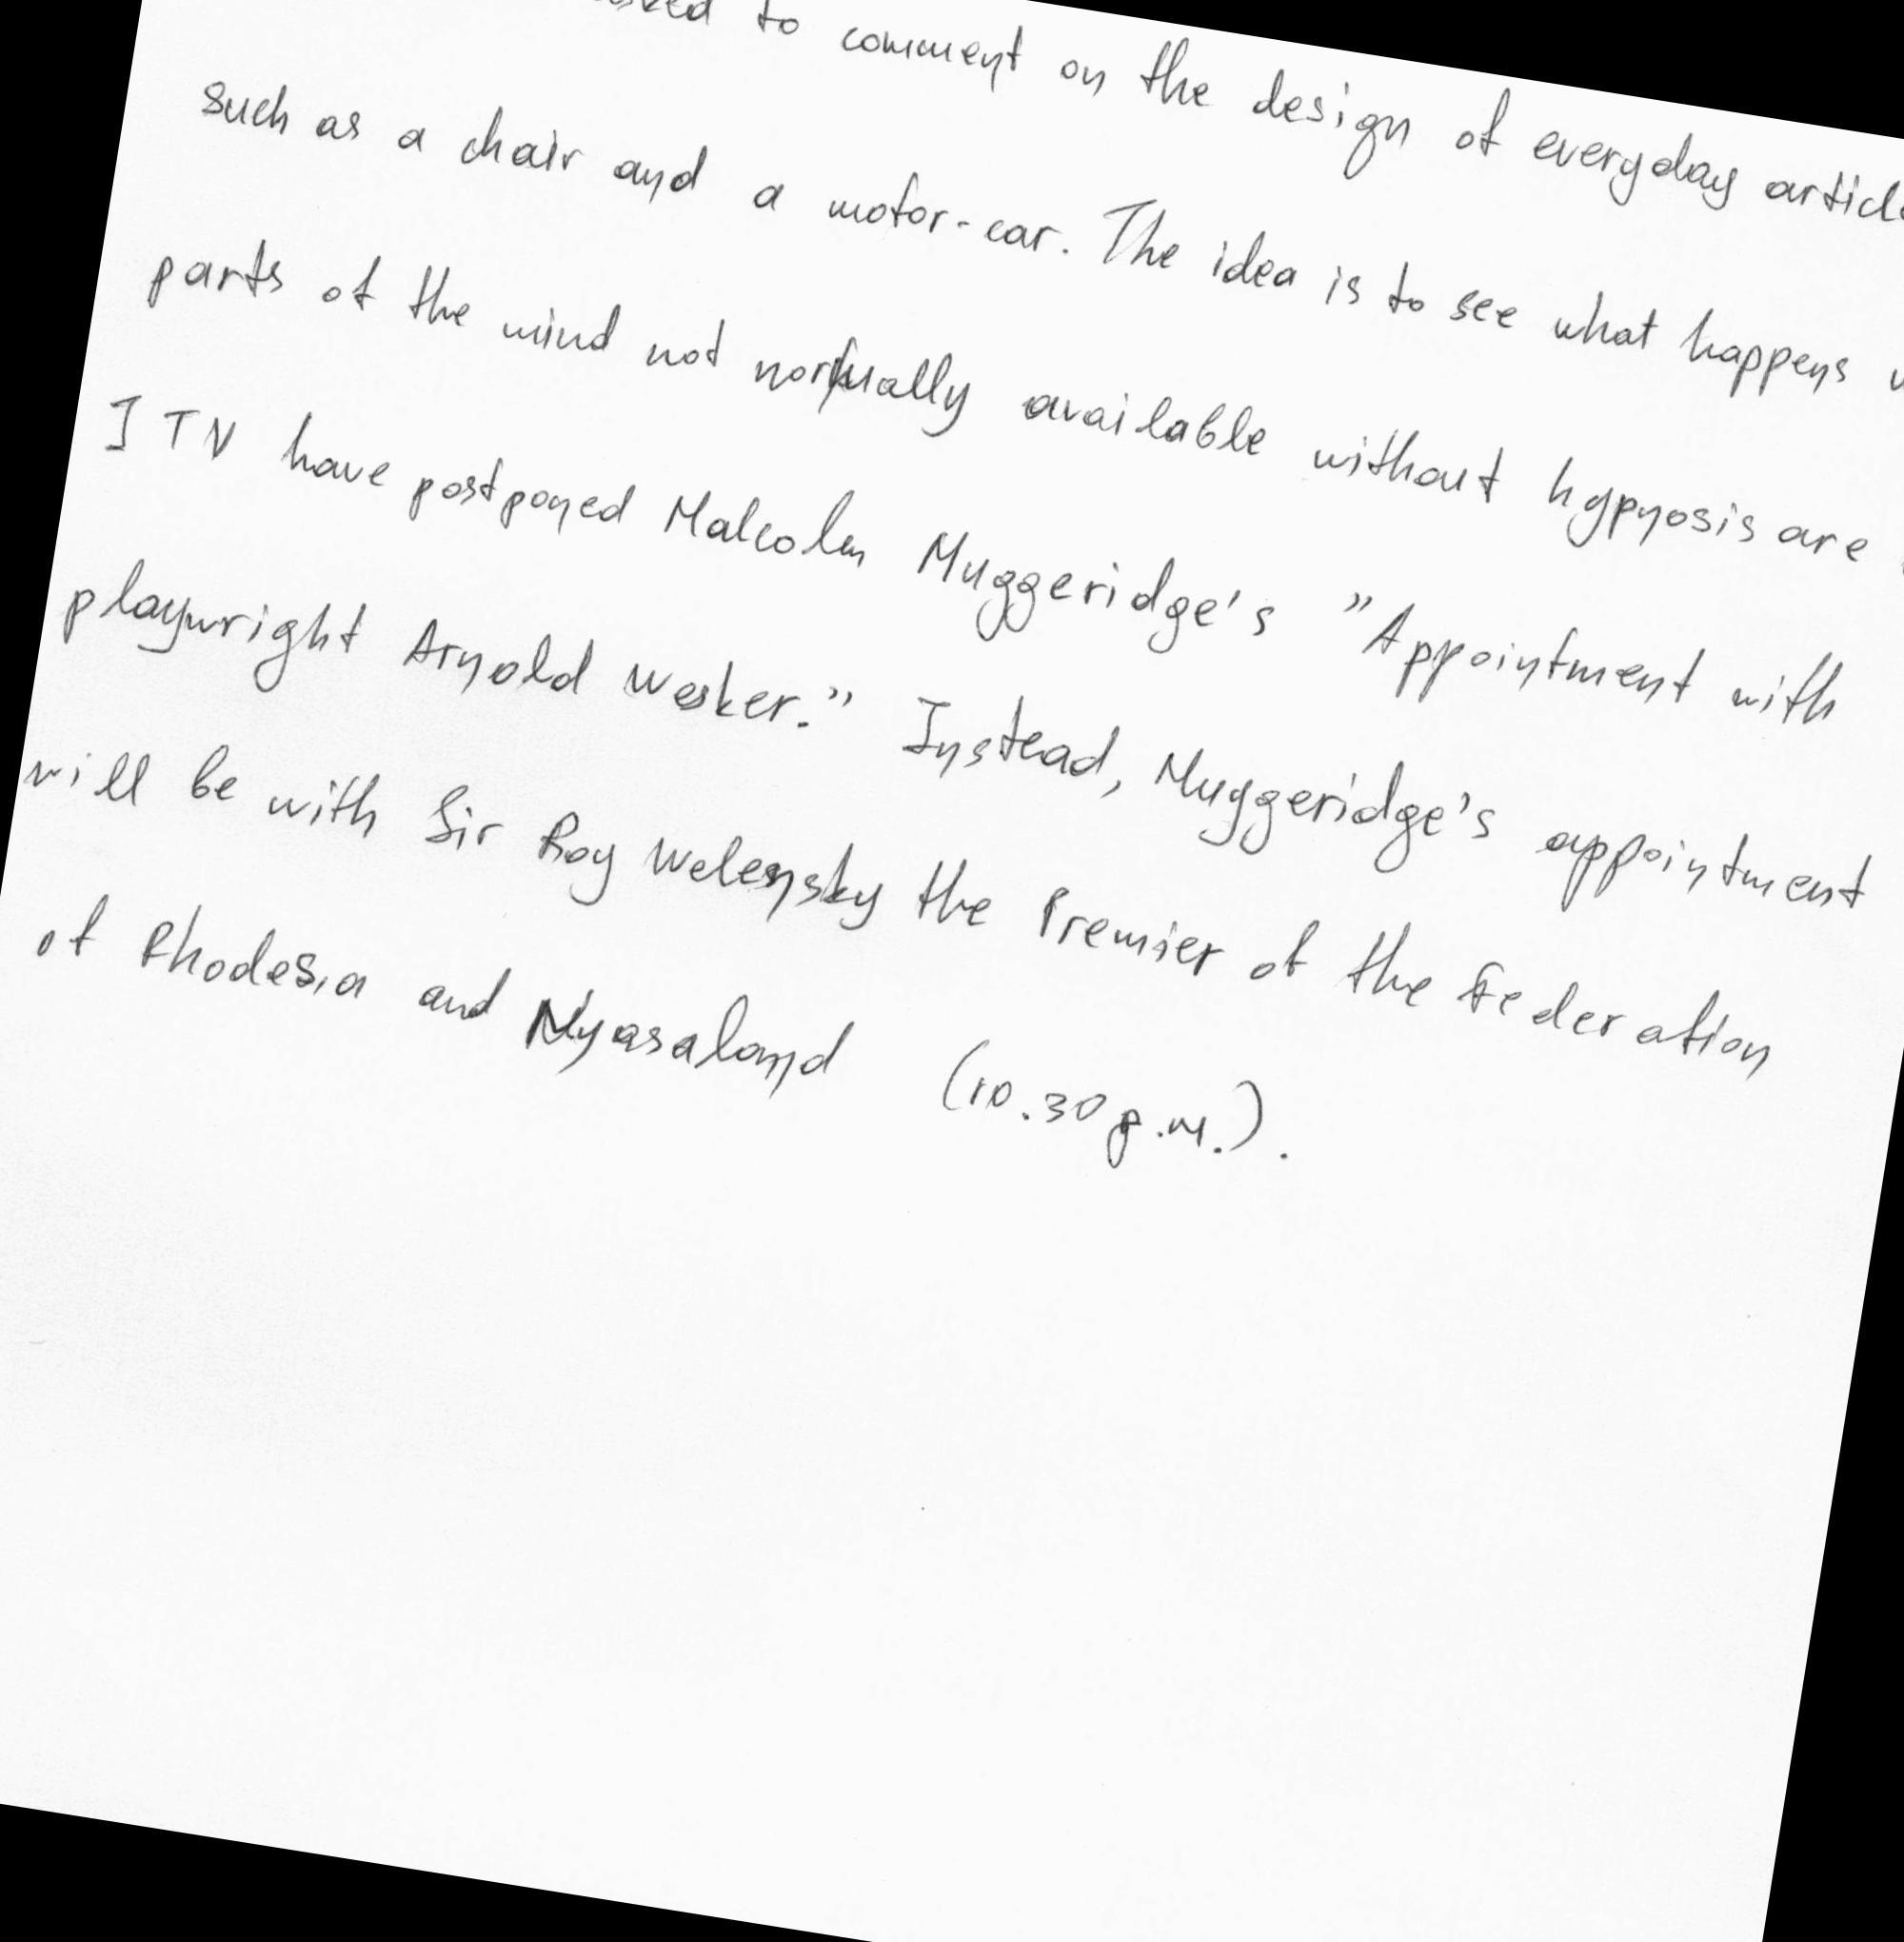 to comment on the design of everyday
such as a chair and a motor-car. The idea is to see what happens
parts of the mind not normally available without hypnosis are
ITN have postponed Malcolm Muggeridge's "Appointment with
playwright Arnold Wesker." Instead, Muggeridge's appointment
will be with Sir Roy Welensky the Premier of the Federation
of Rhodesia and Nyasaland (10.30 p.m.).